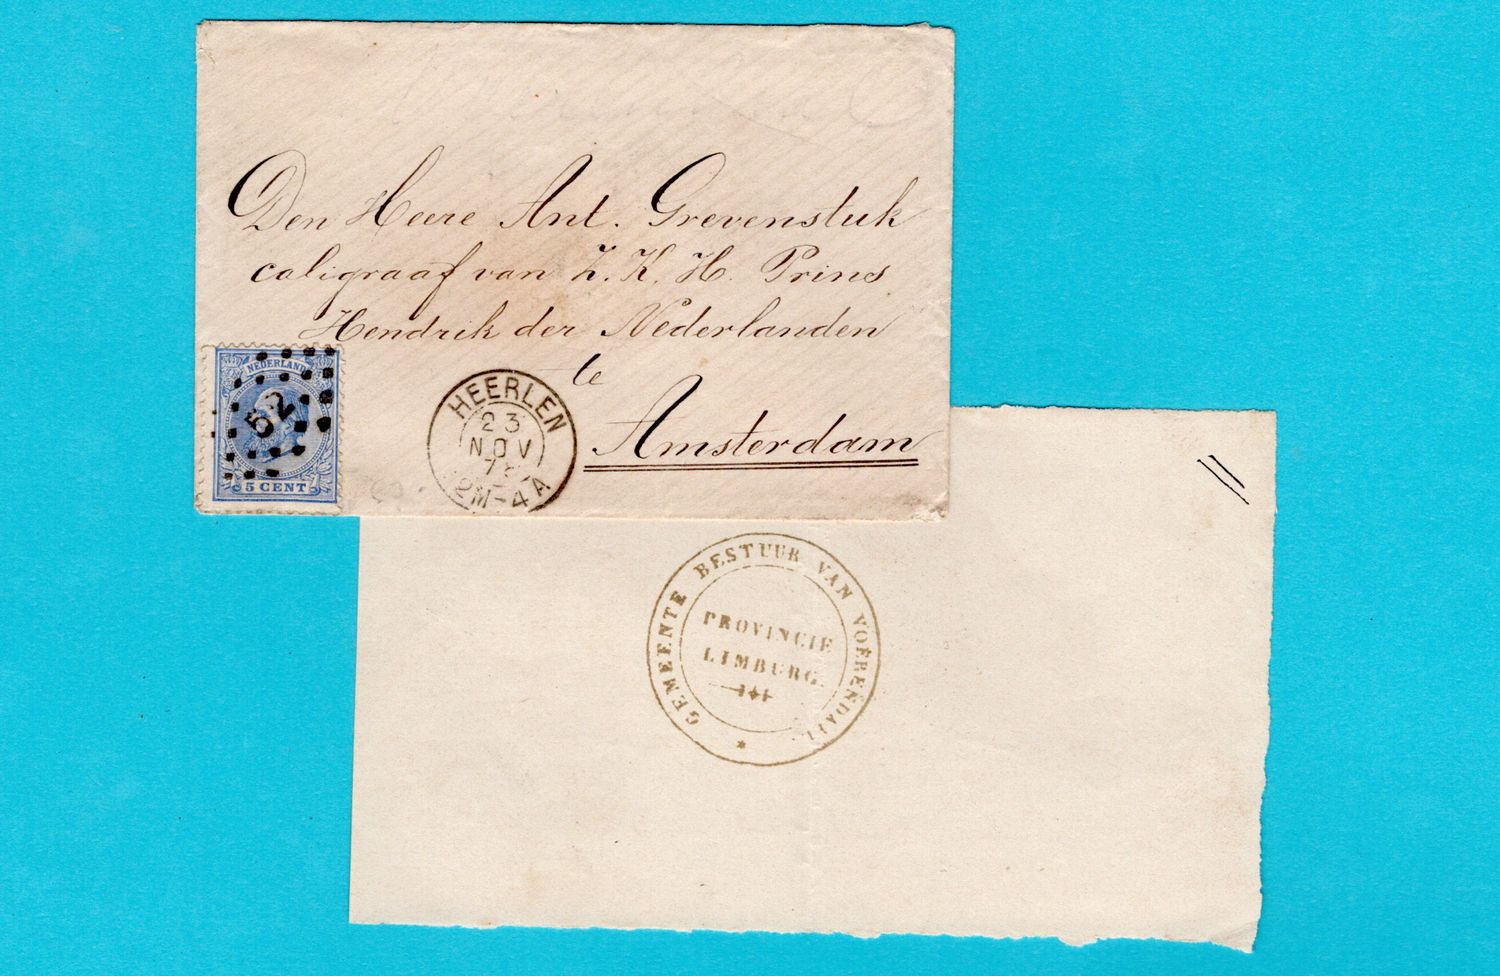 Den Heere Ant. Grevenstuk
caligraaf van Z. K. H. Prins
Hendrik der Nederlanden
te
Amsterdam
NEDERLAND
52
5 CENT
HEERLEN
23
NOV
2M-4A
GEMEENTE BESTUUR VAN VOERENDAAL
PROVINCIE
LIMBURG.